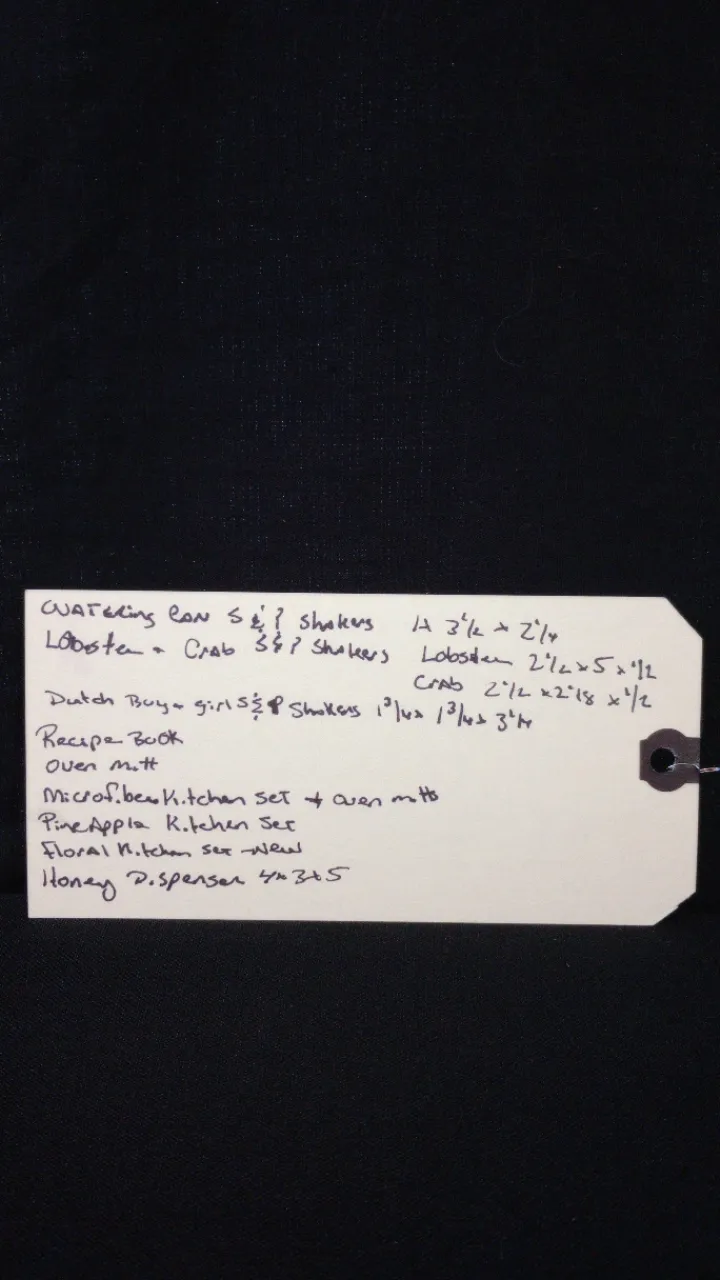 WATERing CAN S & P Shakers 1x 3 1/2 x 2 1/4
Lobster + Crab S & P Shakers Lobster 2 1/2 x 5 x 1/2
Crab 2 1/2 x 2 1/8 x 1/2
Dutch Boy + girl S & P Shakers 1 3/4 x 1 3/4 x 3 1/4
Recipe Book
Oven mitt
Microfiber Kitchen set + oven mitts
PineApple Kitchen Set
FlorAl Kitchen set - New
Honey Dispenser 4x3x5